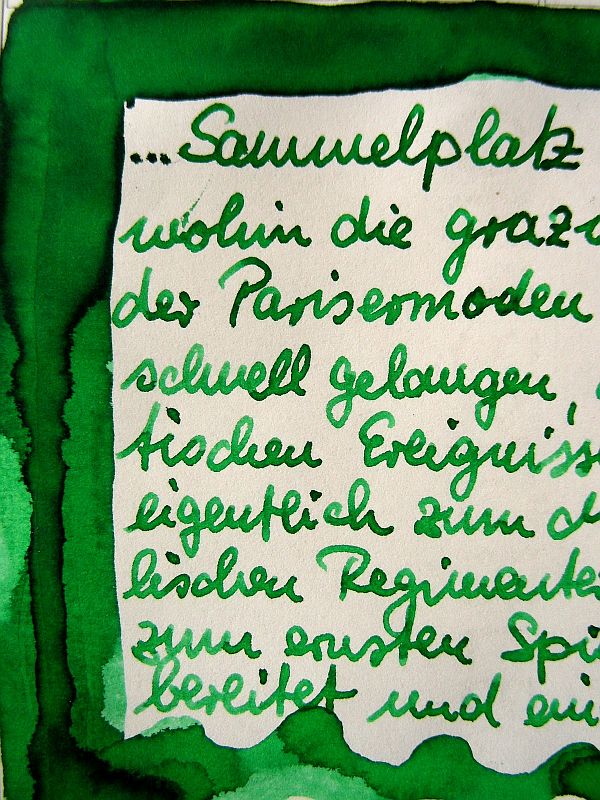 ...Sammelplatz
wohin die grazi
der Parisermoden
schnell gelangen,
tischen Ereignisse
eigentlich zum
lischen Regimenter
zum ernsten Spi
bereitet und ein